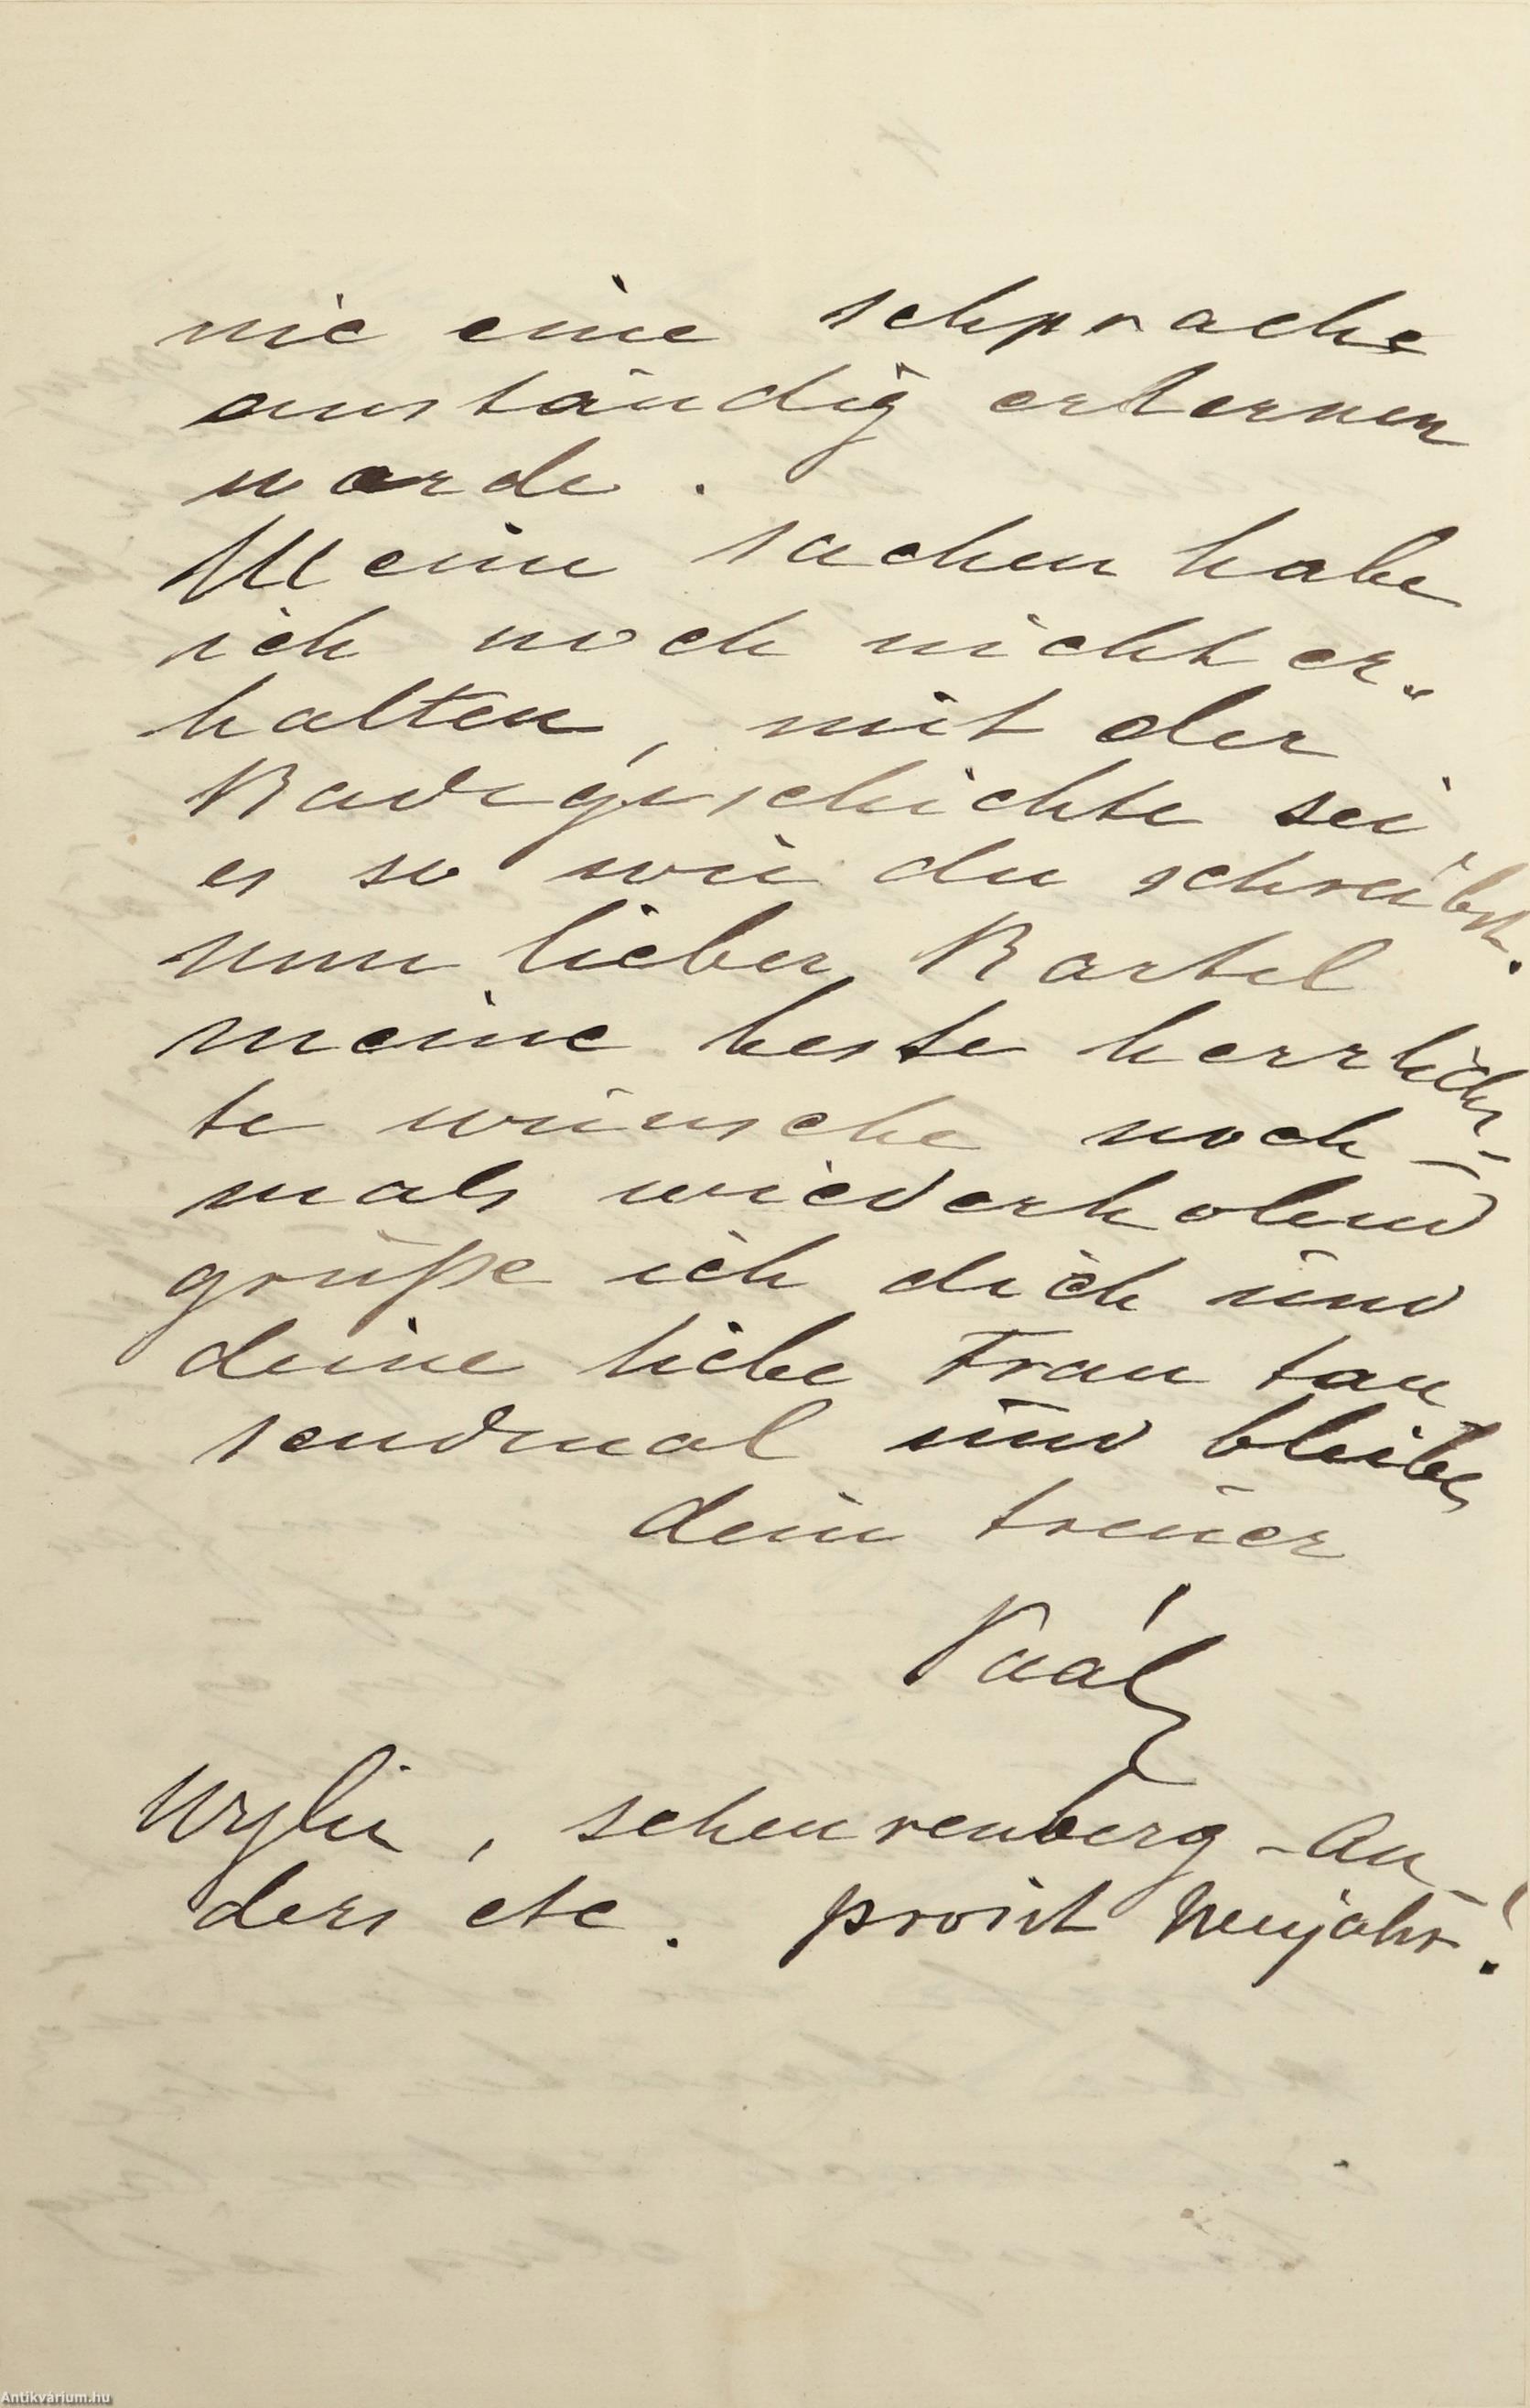 nie eine schprache
anständig erlernen
werde.
Meine sachen habe
ich noch nicht er„
halten, mit der
geschichte sei
es so wie du schreibst.
nun lieber Bartel
meine beste herrlichs
te wünsche noch =
mals wiederholend
grüße ich dich und
deine liebe Frau tau
sendmal und bleibe
dein treuer
Paál
Wylie, scheurenberg - An
ders etc. prosit Neujahr!
Antikvárium.hu